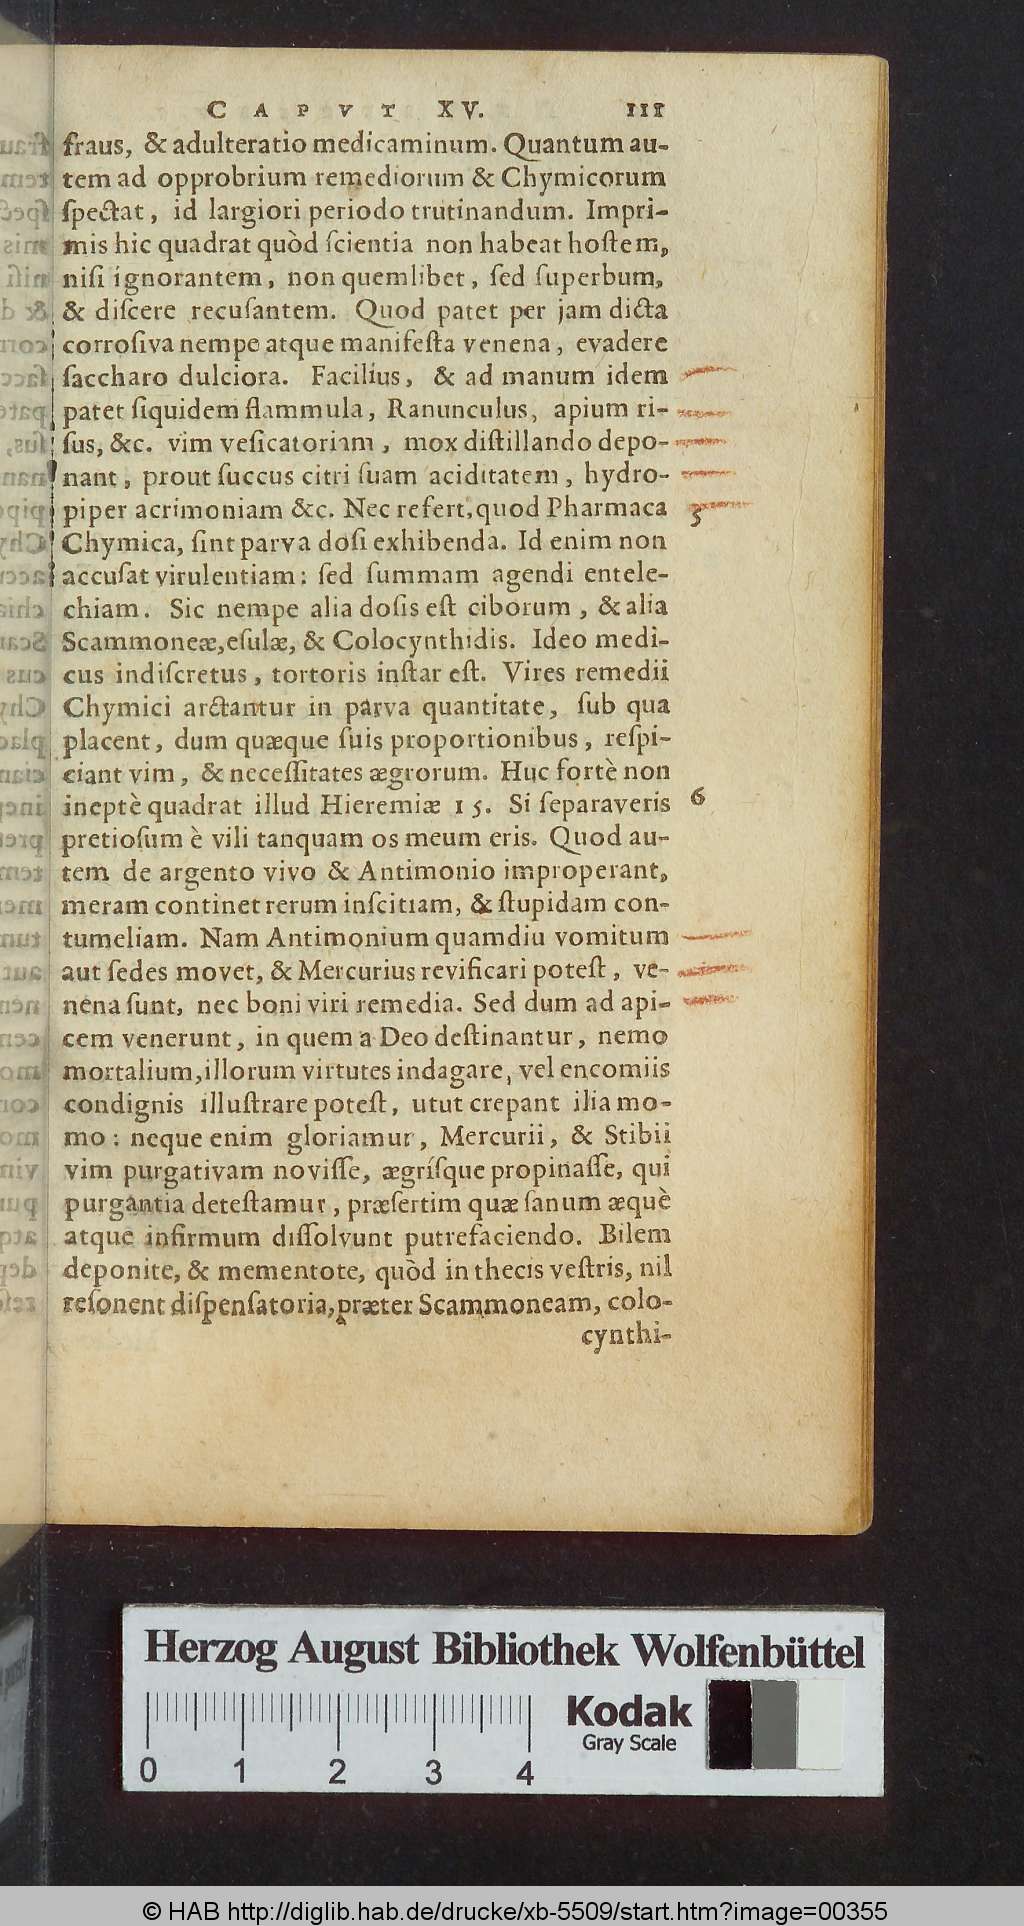 CAPVT XV. 111
fraus, & adulteratio medicaminum. Quantum au-
tem ad opprobrium remediorum & Chymicorum
ſpectat, id largiori periodo trutinandum. Impri-
mis hic quadrat quòd ſcientia non habeat hoſtem,
niſi ignorantem, non quemlibet, ſed ſuperbum,
& diſcere recuſantem. Quod patet per jam dicta
corroſiva nempe atque manifeſta venena, evadere
ſaccharo dulciora. Facilíus, & ad manum idem
patet ſiquidem flammula, Ranunculus, apium ri-
ſus, &c. vim veſicatoriam, mox diſtillando depo-
nant, prout ſuccus citri ſuam aciditatem, hydro-
piper acrimoniam &c. Nec refert, quod Pharmaca 5
Chymica, ſint parva doſi exhibenda. Id enim non
accuſat virulentiam: ſed ſummam agendi entele-
chiam. Sic nempe alia doſis eſt ciborum, & alia
Scammoneæ, eſulæ, & Colocynthidis. Ideo medi-
cus indiſcretus, tortoris inſtar eſt. Vires remedii
Chymici arctantur in parva quantitate, ſub qua
placent, dum quæque ſuis proportionibus, reſpi-
ciant vim, & neceſſitates ægrorum. Huc fortè non
ineptè quadrat illud Hieremiæ 15. Si ſeparaveris 6
pretioſum è vili tanquam os meum eris. Quod au-
tem de argento vivo & Antimonio improperant,
meram continet rerum inſcitiam, & ſtupidam con-
tumeliam. Nam Antimonium quamdiu vomitum
aut ſedes movet, & Mercurius revificari poteſt, ve-
nena ſunt, nec boni viri remedia. Sed dum ad api-
cem venerunt, in quem a Deo deſtinantur, nemo
mortalium, illorum virtutes indagare, vel encomiis
condignis illuſtrare poteſt, utut crepant ilia mo-
mo: neque enim gloriamur, Mercurii, & Stibii
vim purgativam noviſſe, ægríſque propinaſſe, qui
purgantia deteſtamur, præſertim quæ ſanum æquè
atque infirmum diſſolvunt putrefaciendo. Bilem
deponite, & mementote, quòd in thecis veſtris, nil
reſonent diſpenſatoria, præter Scammoneam, colo-
cynthi-
Herzog August Bibliothek Wolfenbüttel
Kodak
Gray Scale
0 1 2 3 4
© HAB http://diglib.hab.de/drucke/xb-5509/start.htm?image=00355